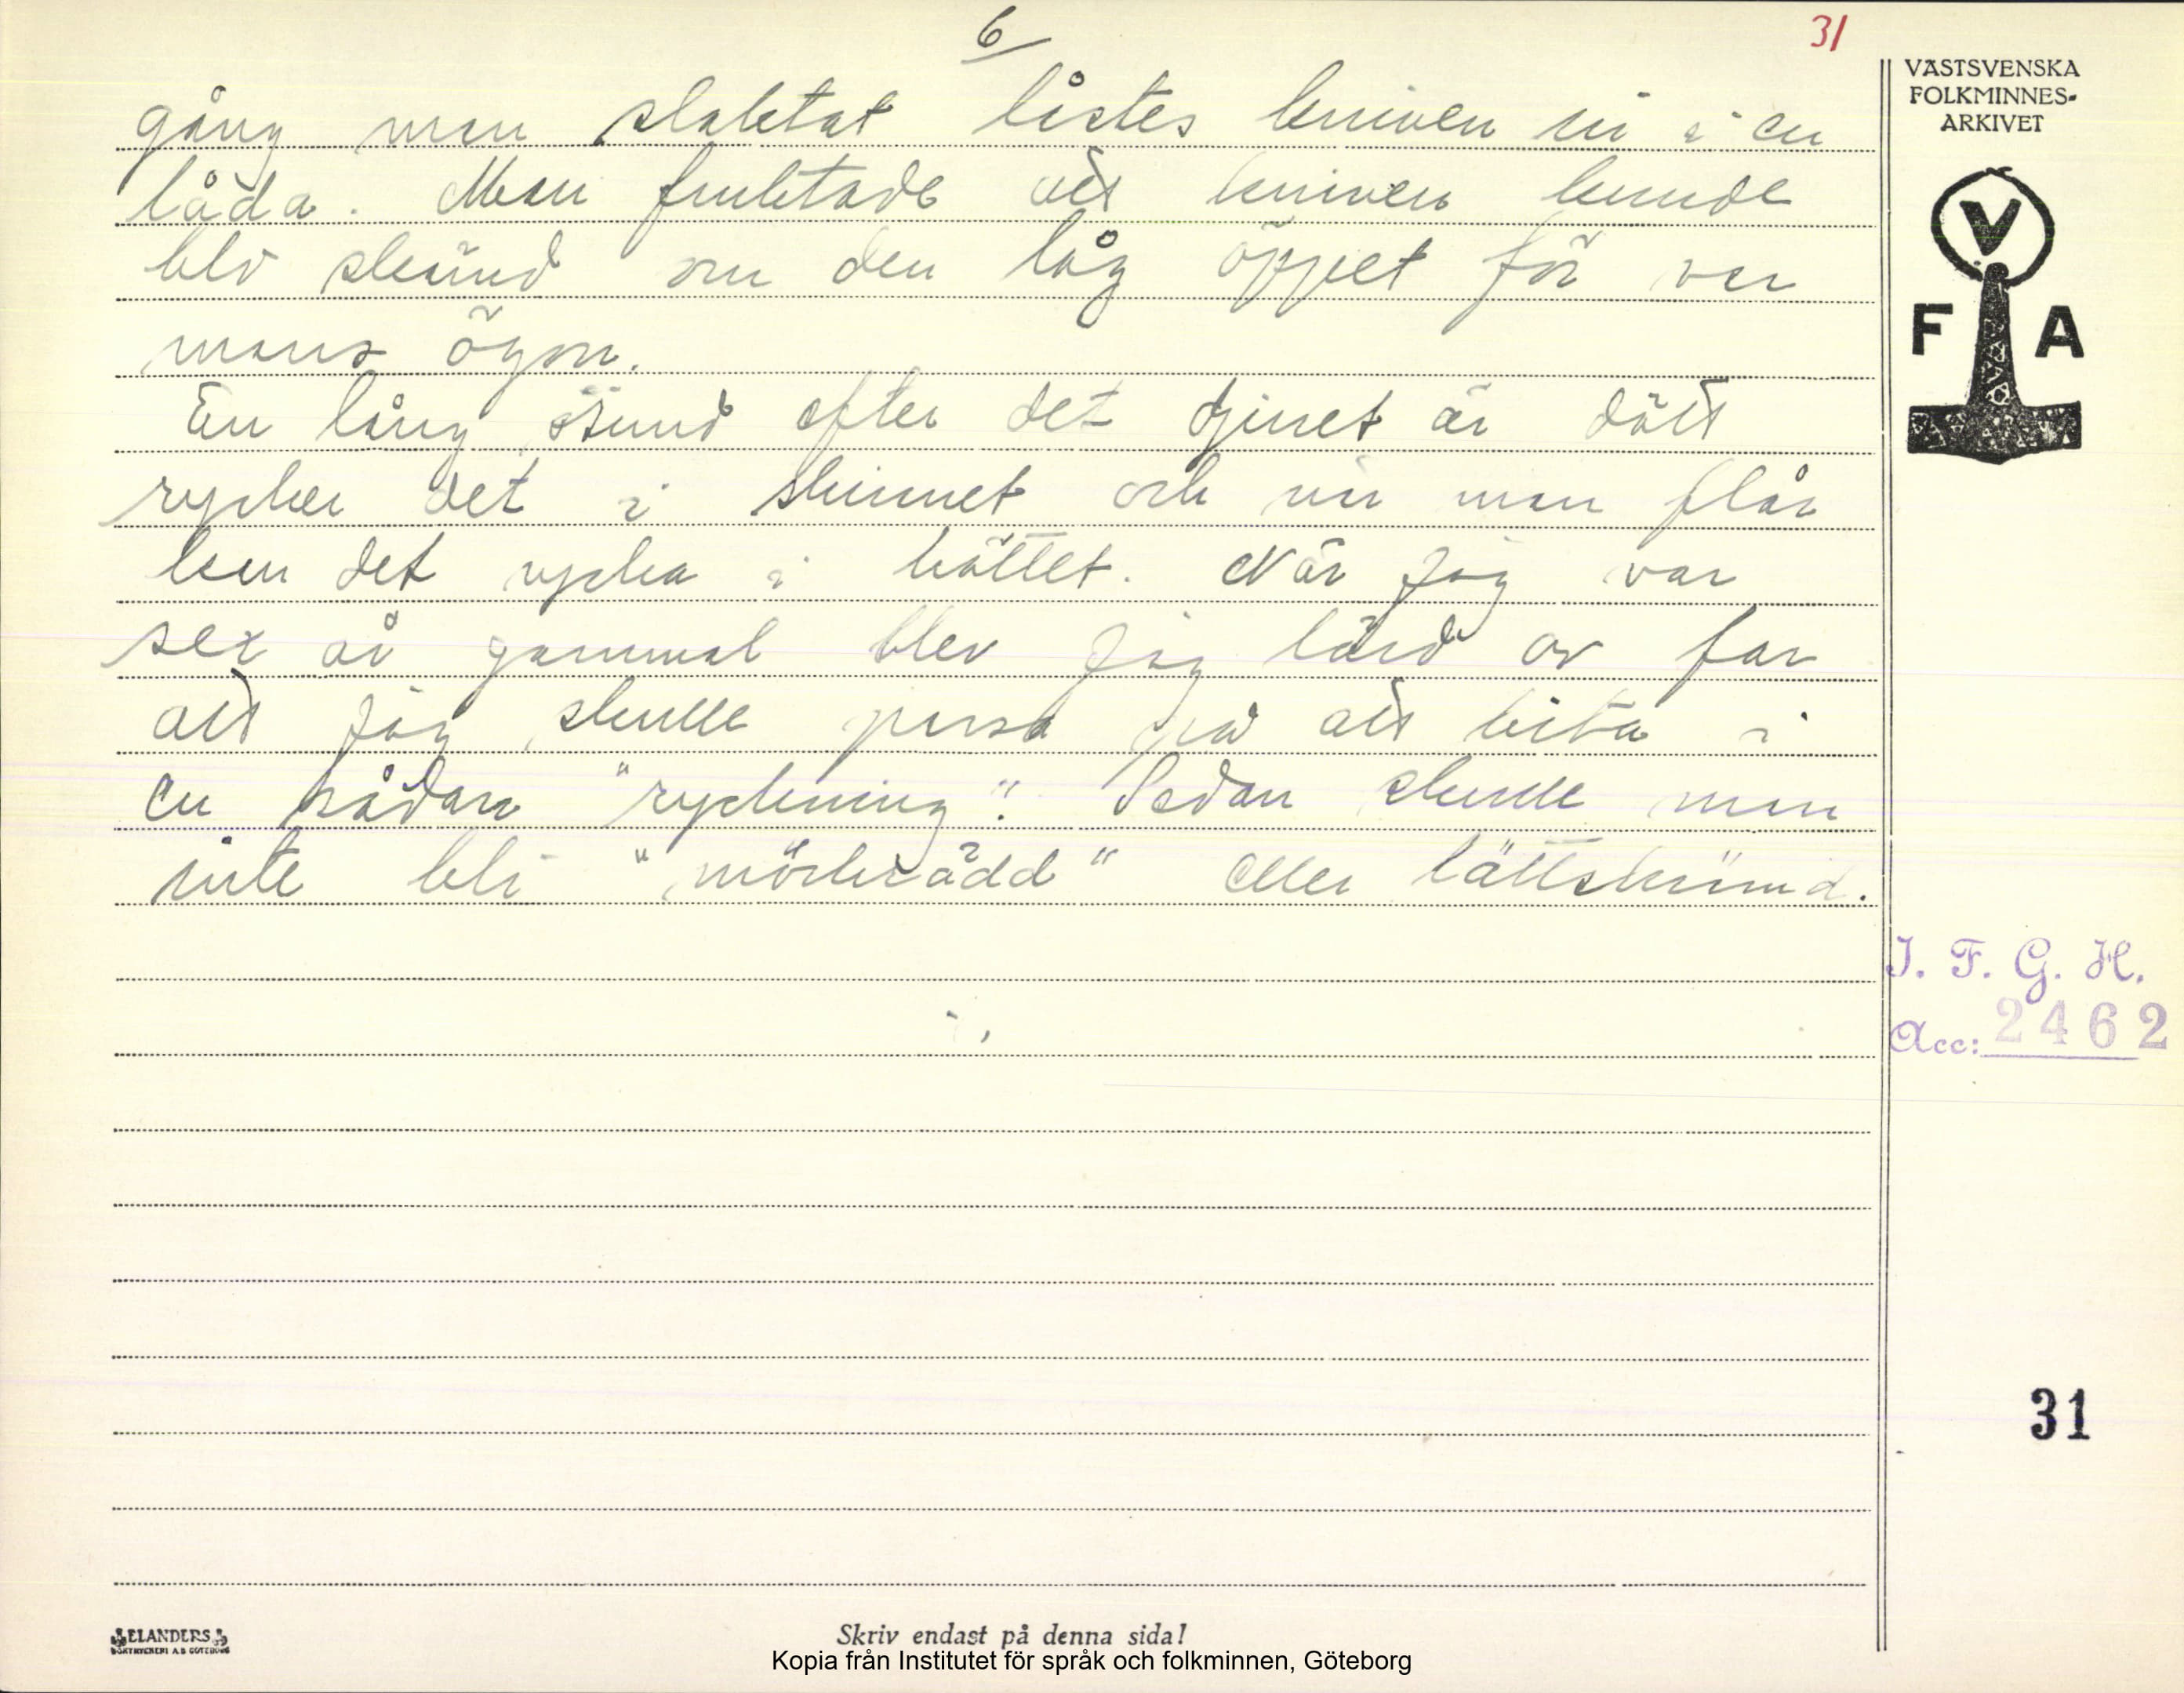 6
31
gång man slaktat låstes kniven in i en
låda. Man fruktade att kniven kunde
bliv skämd om den låg öppet för var
mans ögon.
En lång stund efter det djuret är dött
rycker det i skinnet och när man flår
kan det rycka i köttet. När jag var
sex år gammal blev jag lärd av far
att jag skulle passa på att bita i
en sådan "ryckning". Sedan skulle man
inte bli "mörkrädd" eller lättskrämd.
VÄSTSVENSKA
FOLKMINNES-
ARKIVET
V
F A
I. F. G. H.
Acc: 2462
31
ELANDERS
BOKTRYCKERI A.B GÖTEBORG
Skriv endast på denna sida!
Kopia från Institutet för språk och folkminnen, Göteborg